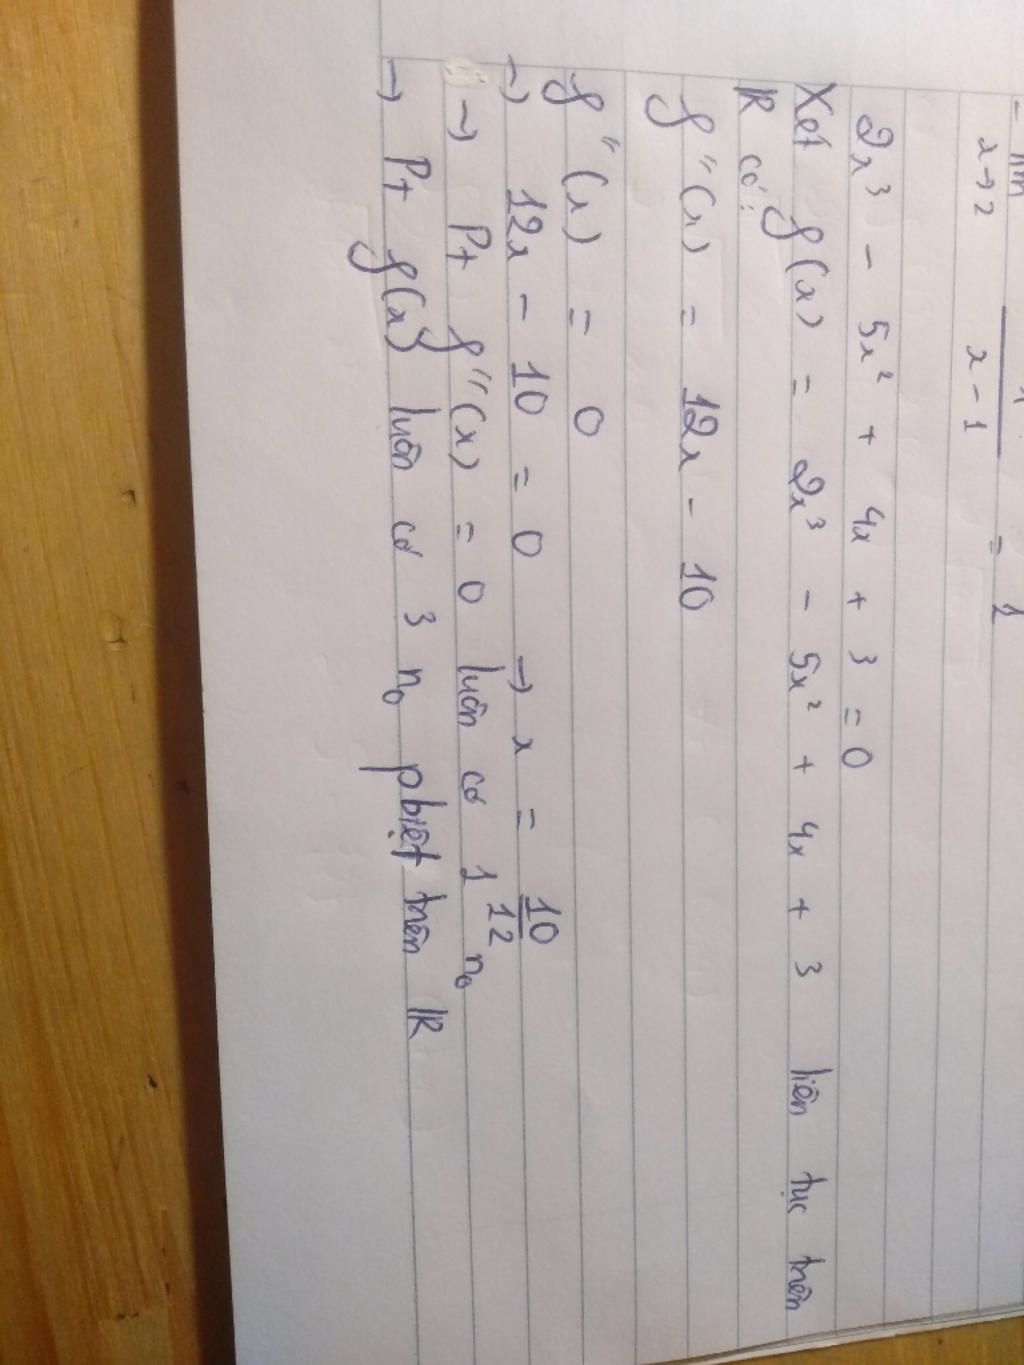 - lim
x→2
x - 1
=
1
2x³ - 5x² + 4x + 3 = 0
Xét f(x) = 2x³ - 5x² + 4x + 3 liên tục trên
R có:
f"(x) = 12x - 10
f"(x) = 0
→ 12x - 10 = 0 → x = 10/12
→ Pt f"(x) = 0 luôn có 1 n₀
→ Pt f(x) luôn có 3 n₀ pbiệt trên R